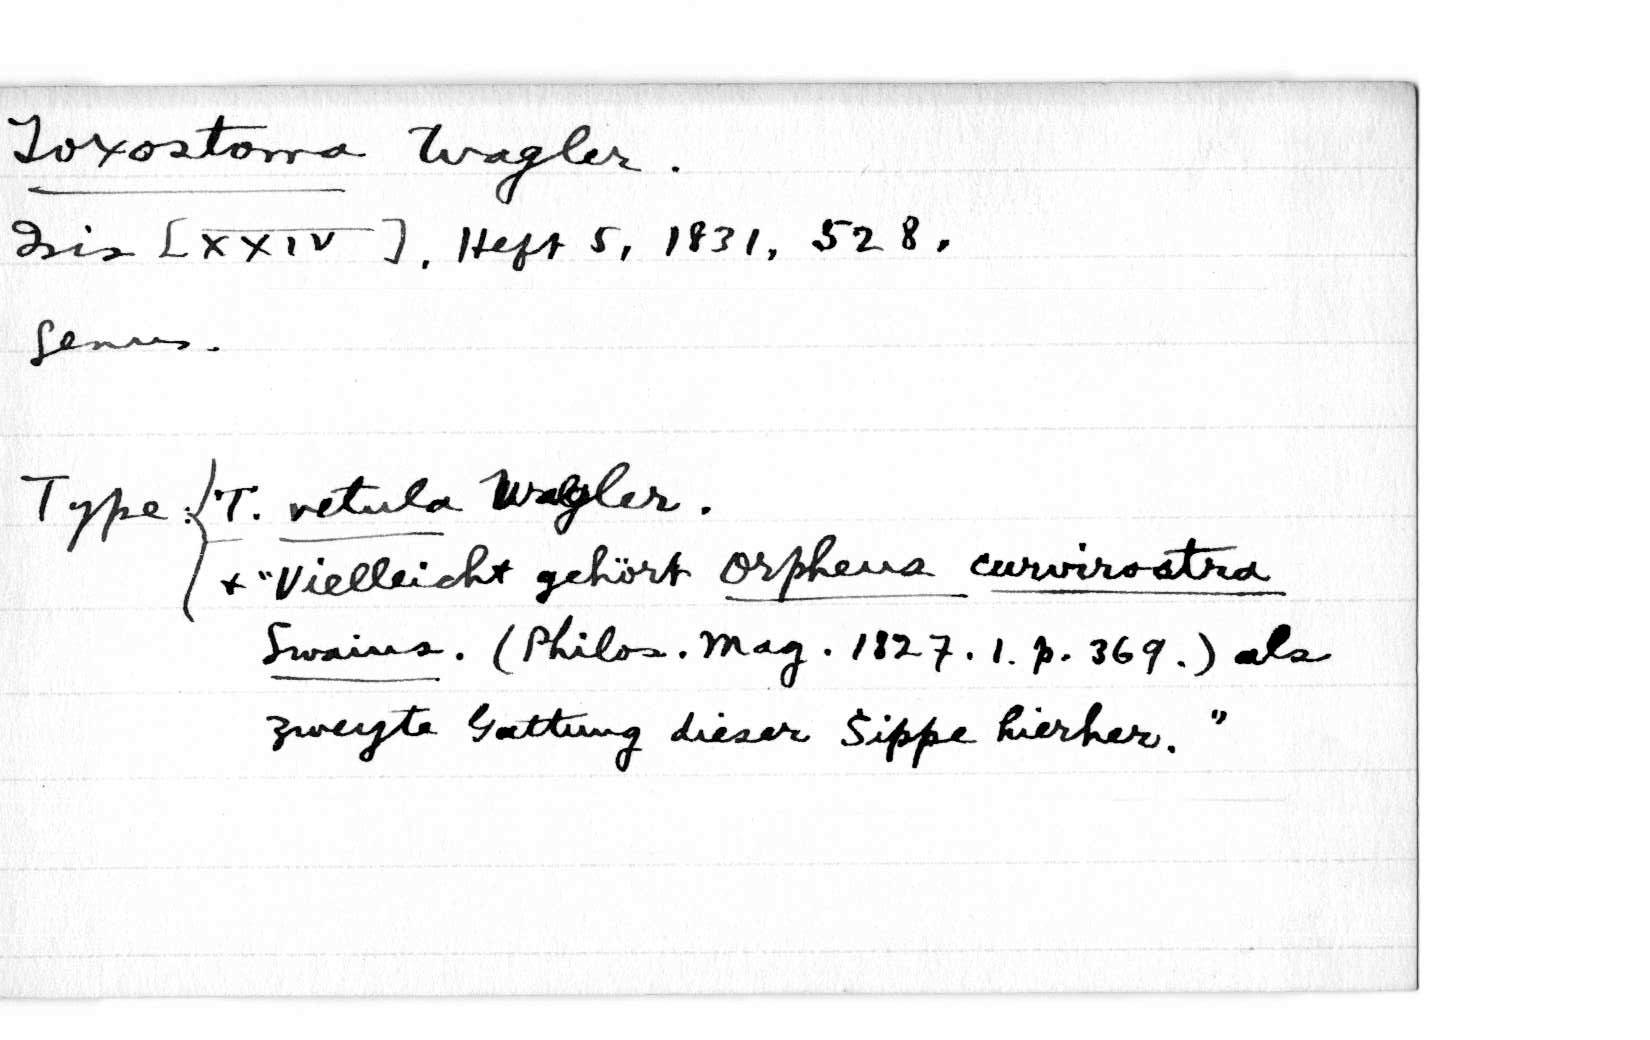 Toxostoma Wagler.
Isis [XXIV], Heft 5, 1831, 528.
Genus.
Type: { T. vetula Wagler.
+ "Vielleicht gehört Orpheus curvirostra
Swains. (Philos. Mag. 1827. 1. p. 369.) als
zweyte Gattung dieser Sippe hierher."